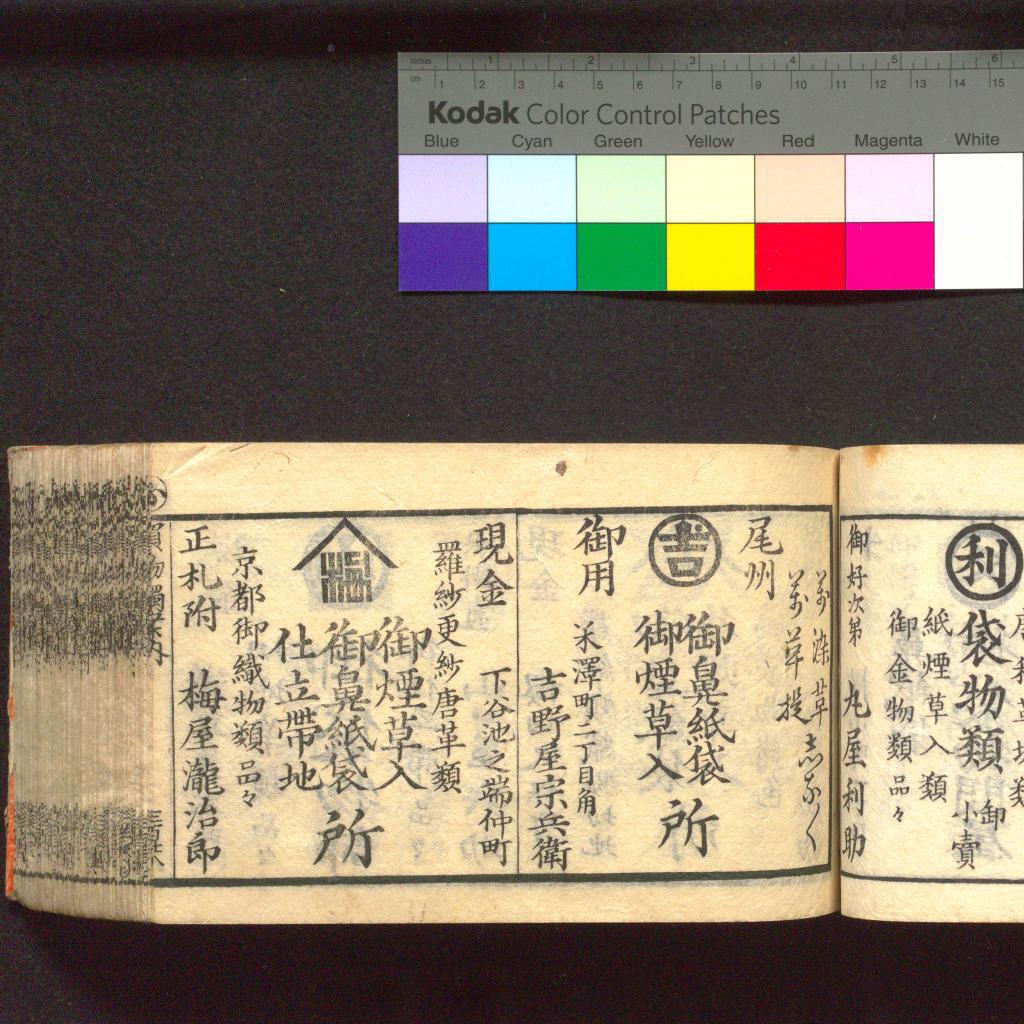 inches 1 2 3 4 5 6
cm 1 2 3 4 5 6 7 8 9 10 11 12 13 14 15
Kodak Color Control Patches
Blue Cyan Green Yellow Red Magenta White
利
袋物類
卸
小賣
紙煙草入類
御金物類品々
御好次第
丸屋利助
萬染草
萬草提
尾州
吉
御鼻紙袋
御煙草入
所
御用
米澤町二丁目角
吉野屋宗兵衛
現金
下谷池之端仲町
羅紗更紗唐革類
御煙草入
御鼻紙袋
所
仕立帶地
京都御織物類品々
正札附
梅屋瀧治郎